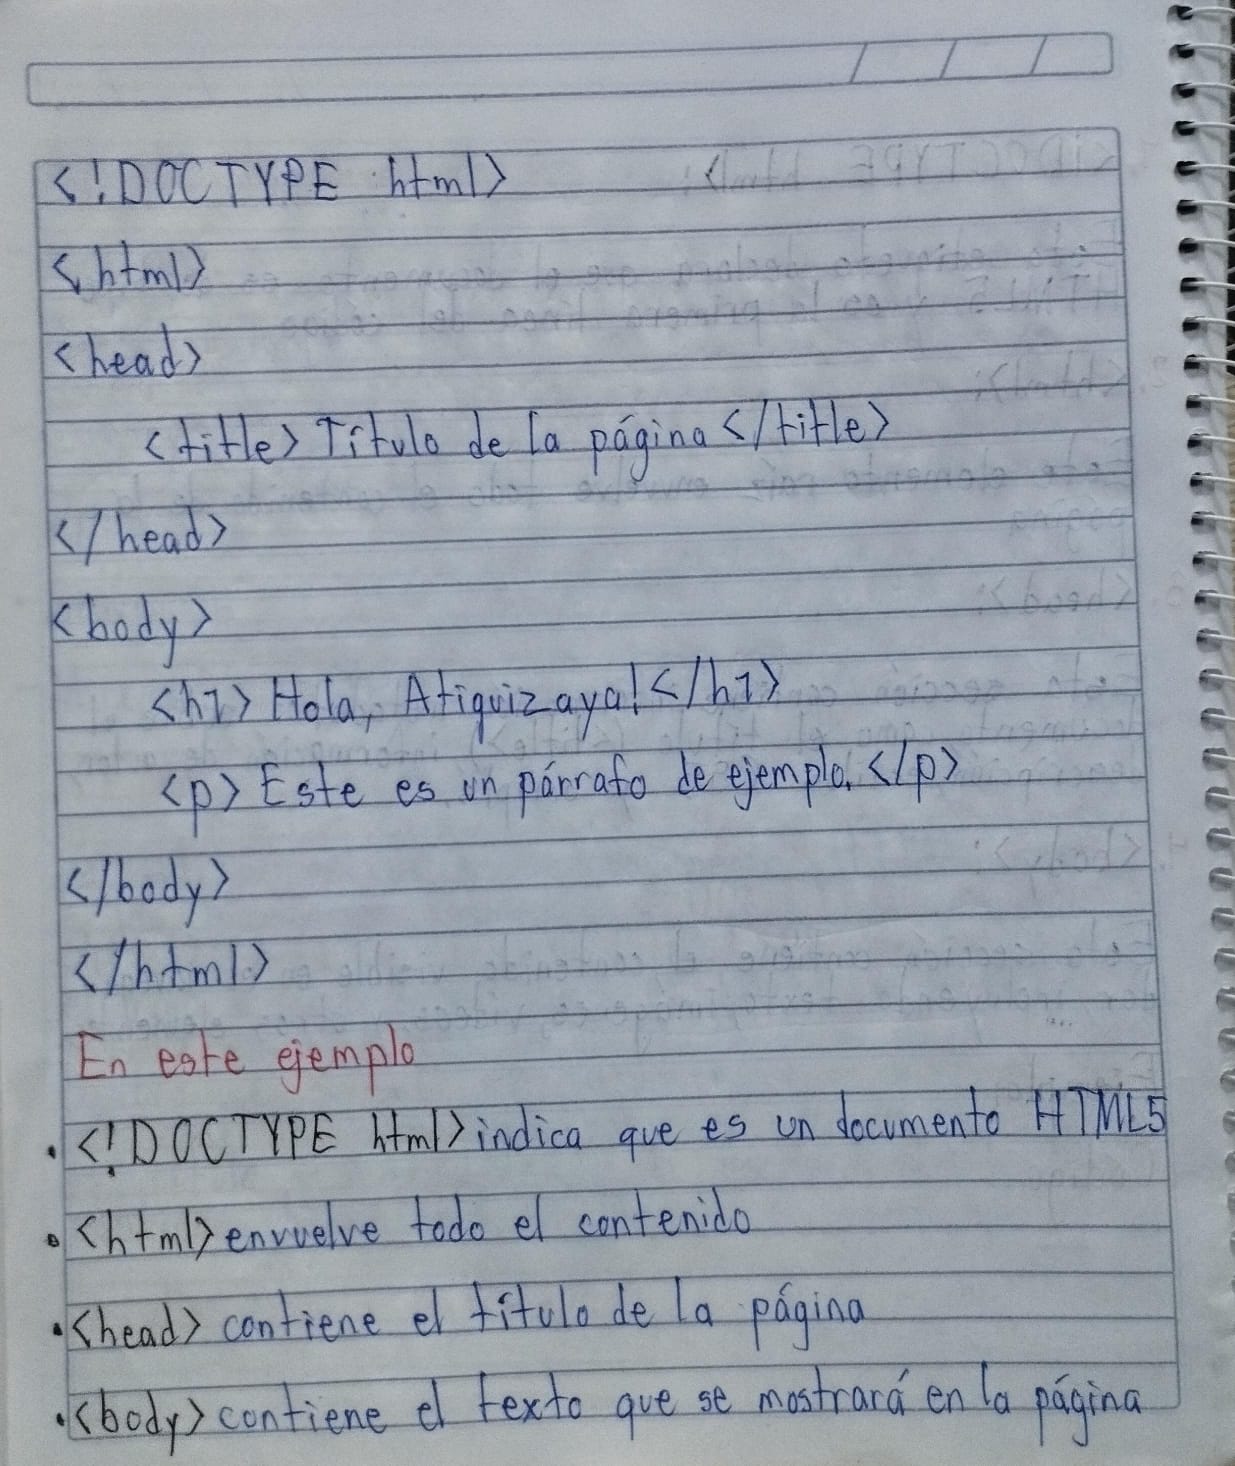 <!DOCTYPE html>
<html>
<head>
<title>Título de la página</title>
</head>
<body>
<h1>Hola, Atiquizaya!</h1>
<p>Este es un párrafo de ejemplo.</p>
</body>
</html>
En este ejemplo
• <!DOCTYPE html> indica que es un documento HTML5
• <html> envuelve todo el contenido
• <head> contiene el título de la página
• <body> contiene el texto que se mostrará en la página